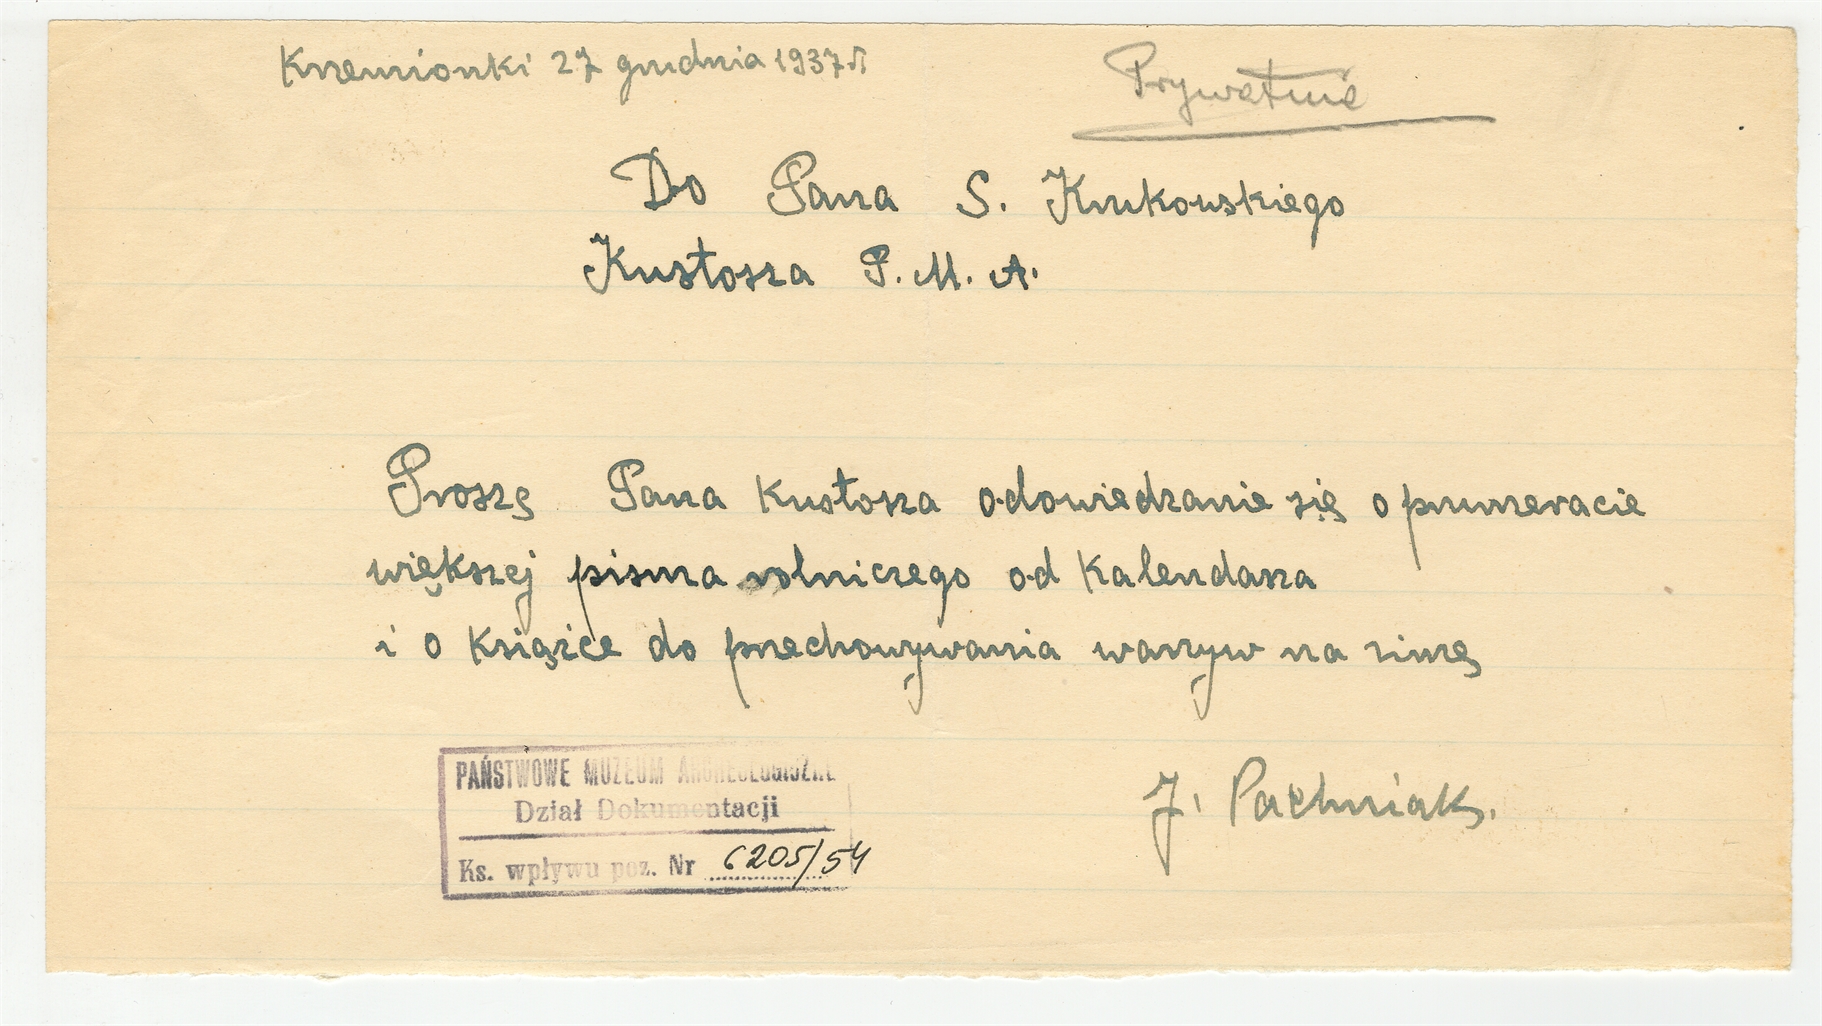 Krzemionki 27 grudnia 1937 r
Prywatnie
Do Pana S. Krukowskiego
Kustosza P. M. A.
Proszę Pana Kustosza o dowiedzanie się o prumeracie
większej pisma rolniczego od Kalendasza
i o książce do przechowywania warzyw na zimę
J. Pachniak.
PAŃSTWOWE MUZEUM ARCHEOLOGICZNE
Dział Dokumentacji
Ks. wpływu poz. Nr 6205/54